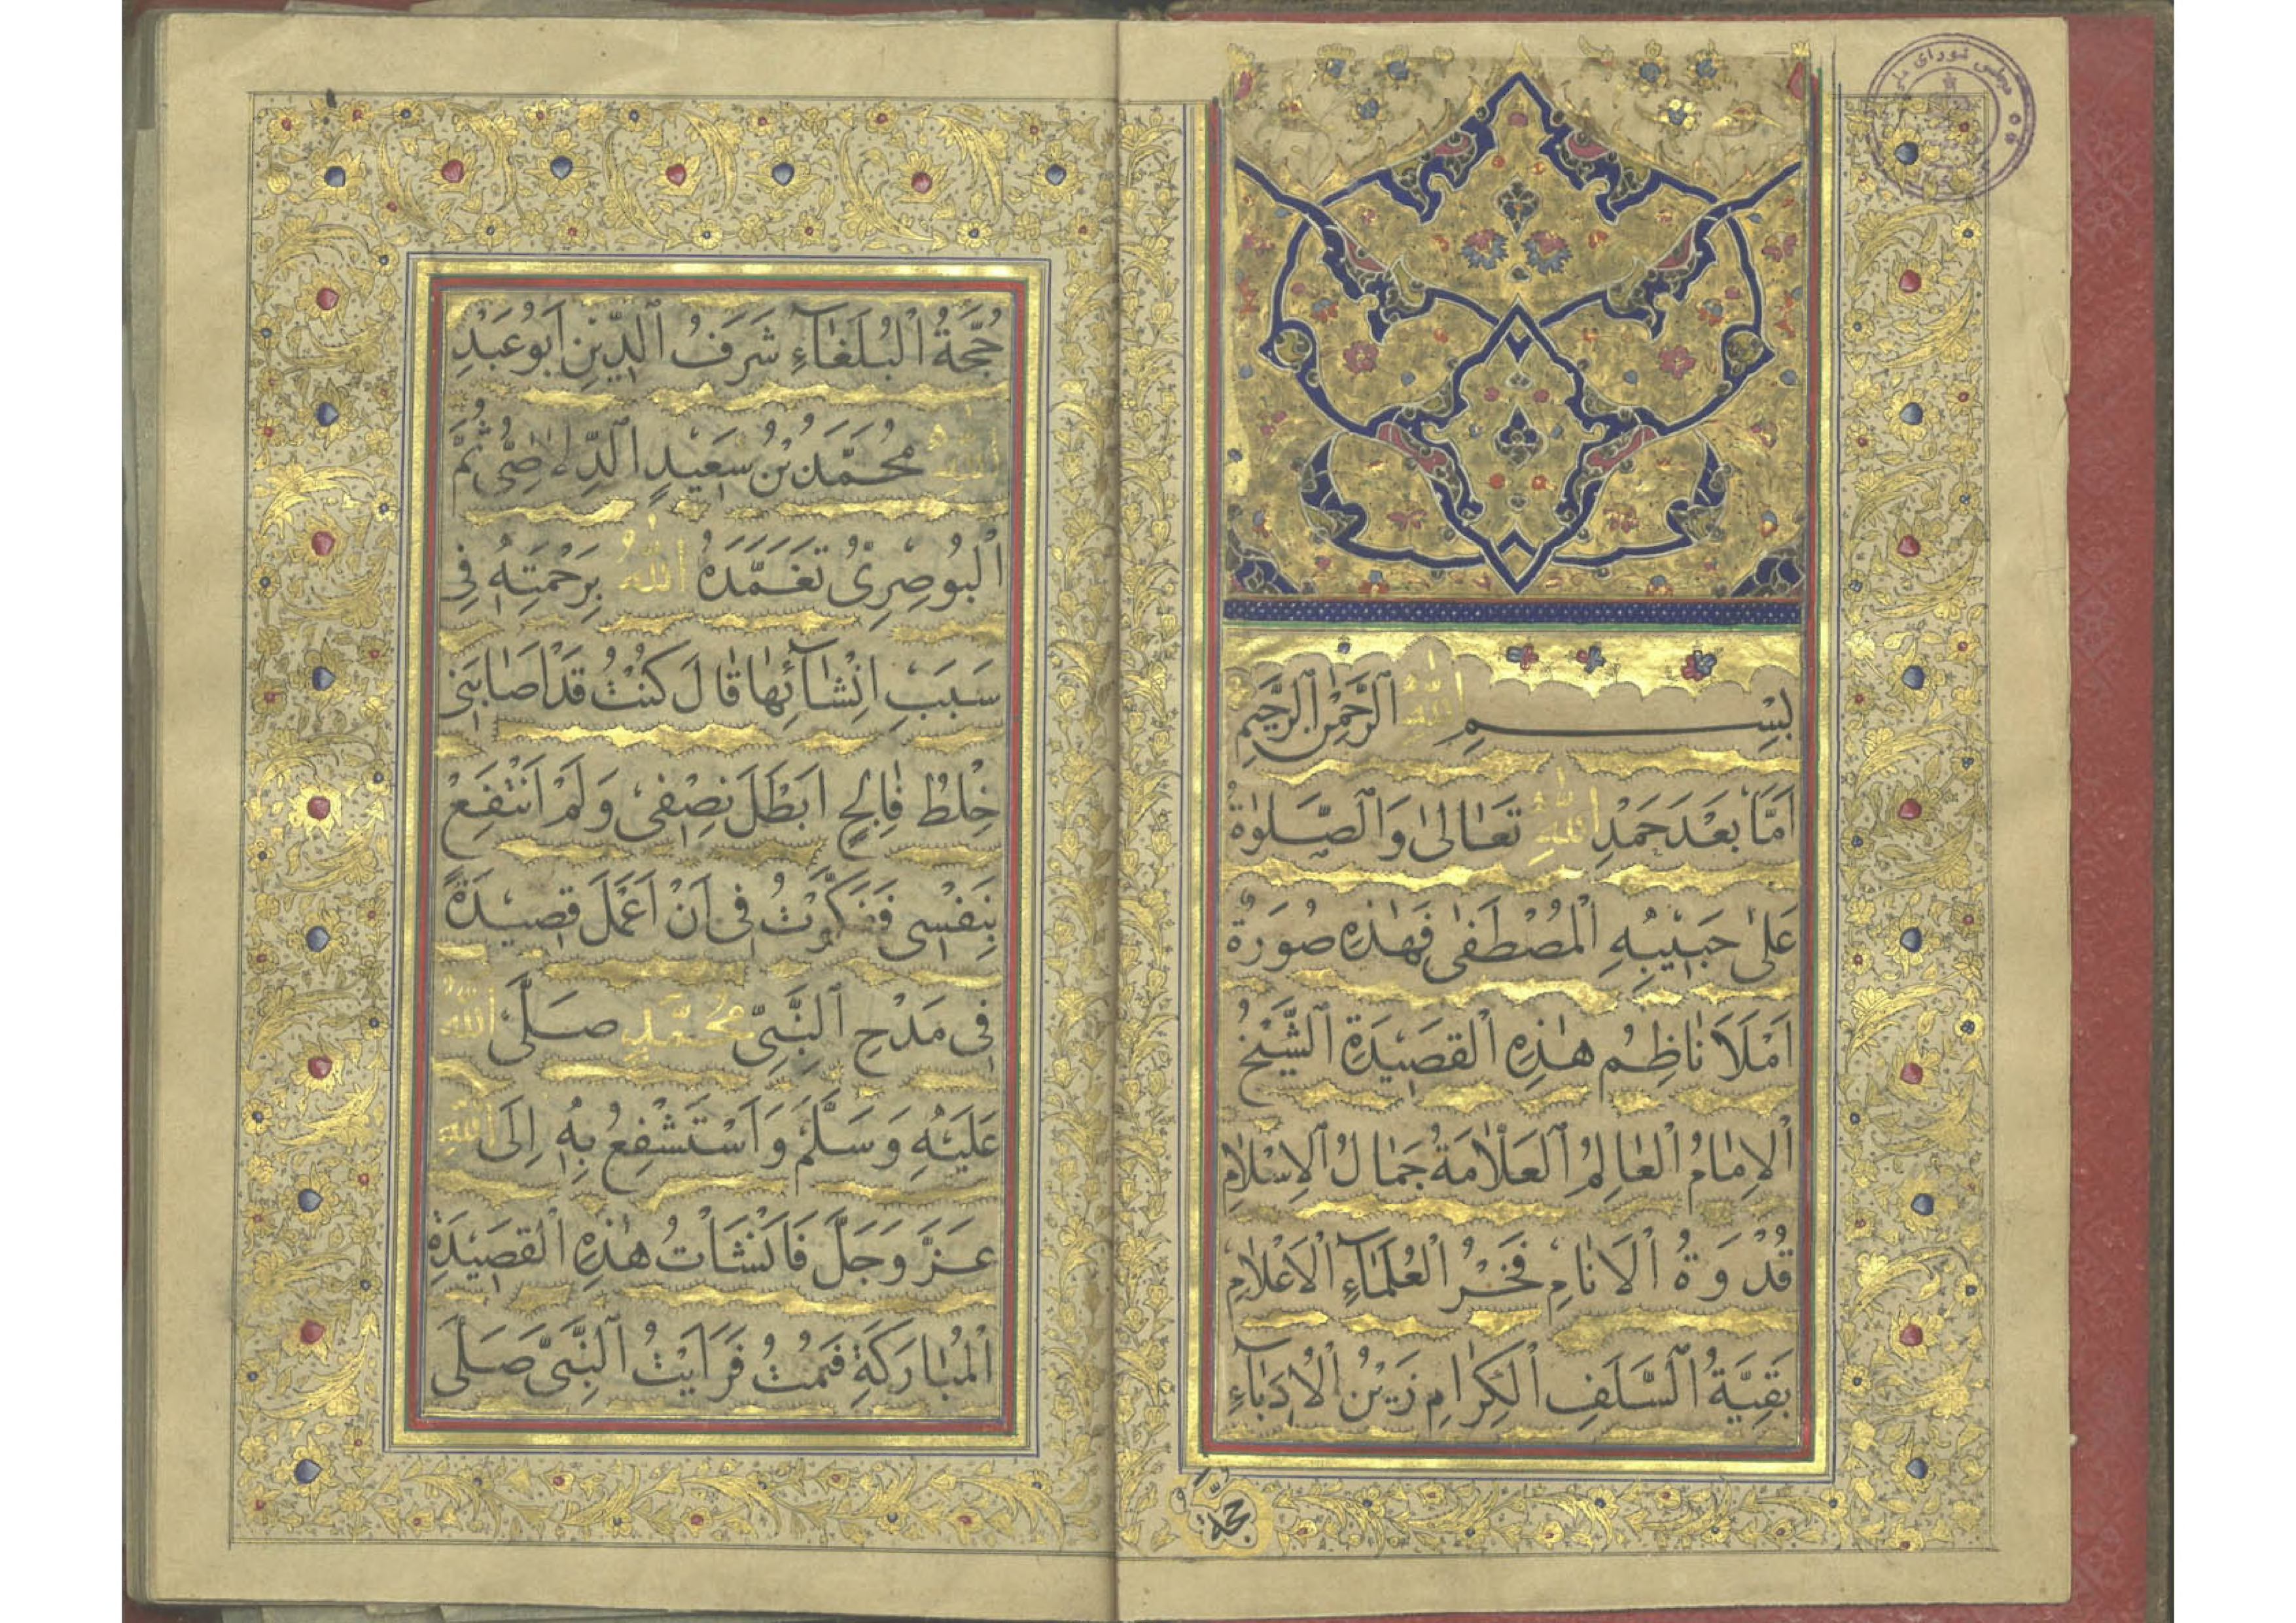 بِسْمِ اللهِ الرَّحْمٰنِ الرَّحِيمِ
اَمَّا بَعْدَ حَمْدِ اللهِ تَعَالىٰ وَالصَّلوٰةُ
عَلىٰ حَبِيبِهِ الْمُصْطَفىٰ فَهٰذِهِ صُورَةُ
اَمْلَاَ نَاظِمُ هٰذِهِ الْقَصِيدَةِ الشَّيْخُ
الْاِمَامُ الْعَالِمُ الْعَلَّامَةُ جَمَالُ الْاِسْلَامِ
قُدْوَةُ الْاَنَامِ فَخْرُ الْعُلَمَآءِ الْاَعْلَامِ
بَقِيَّةُ السَّلَفِ الْكِرَامِ زَيْنُ الْاُدَبَآءِ
حُجَّةُ
حُجَّةُ الْبُلَغَآءِ شَرَفُ الدِّينِ اَبُو عَبْدِ
اللهِ مُحَمَّدُ بْنُ سَعِيدٍ الدِّلَاصِىُّ ثُمَّ
الْبُوصِرِىُّ تَغَمَّدَهُ اللهُ بِرَحْمَتِهِ فِى
سَبَبِ اِنْشَآئِهَا قَالَ كُنْتُ قَدْ اَصَابَنِى
خِلْطُ فَالِجٍ اَبْطَلَ نِصْفِى وَلَمْ اَنْتَفِعْ
بِنَفْسِى فَفَكَّرْتُ فِى اَنْ اَعْمَلَ قَصِيدَةً
فِى مَدْحِ النَّبِىِّ مُحَمَّدٍ صَلَّى اللهُ
عَلَيْهِ وَسَلَّمَ وَاَسْتَشْفِعُ بِهِ اِلَى اللهِ
عَزَّ وَجَلَّ فَاَنْشَاْتُ هٰذِهِ الْقَصِيدَةِ
الْمُبَارَكَةِ فَنِمْتُ فَرَاَيْتُ النَّبِىَّ صَلَّى